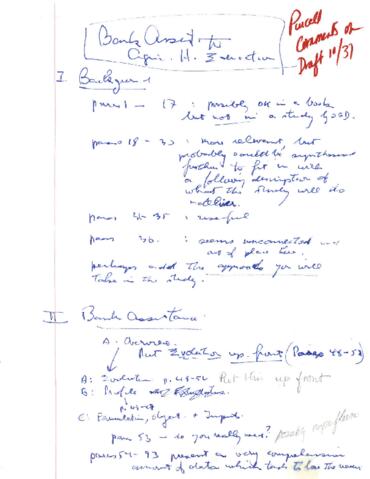 Bank Assist to
Agric. H. Education
Purcell
Comments on
Draft 10/31
I. Background
paras 1 - 17 : possibly OK in a book
but not in a study by OED.
paras 18 - 30 : more relevant, but
probably could be synthesised
further to fit in with
a following description of
what the study will do
deliver.
paras 31-35 : useful
paras 36 : seems unconnected and
out of place here.
perhaps add the approach you will
take in the study.
II Bank Assistance
A. Overview
Put Evolution up front (Paras 48-52)
A: Evolution p.48-52 Put this up front
B: Profile
C: Formulation, object. + Impl.
para 53 - do you really need? possibly
paras 54-93 present a very comprehensive
amount of data which tends to lose the